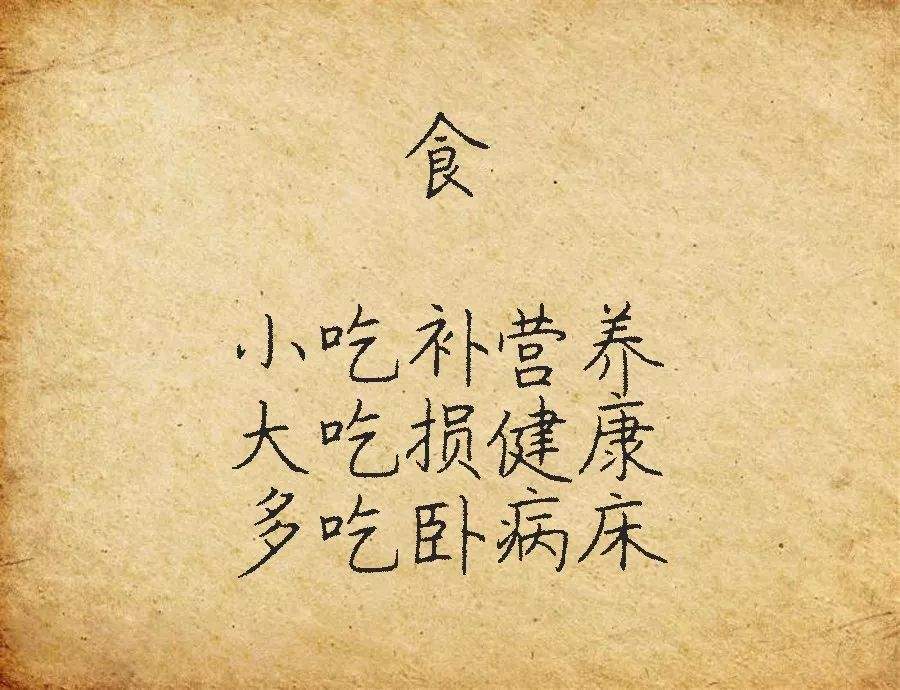 食
小吃补营养
大吃损健康
多吃卧病床